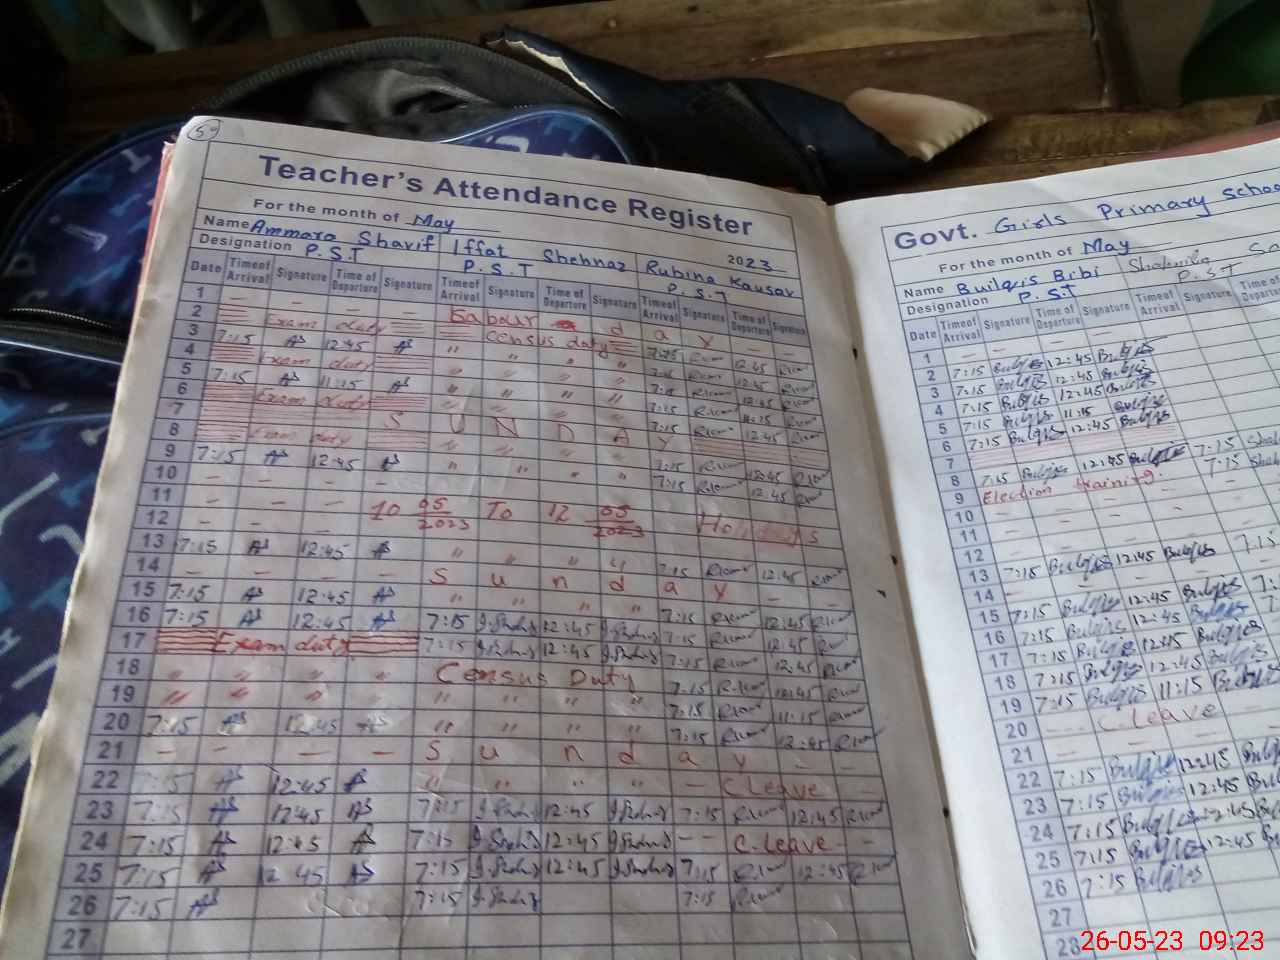 5
Teacher's Attendance Register
For the month of May 2023
Name Ammara Sharif Iffat Shehnaz Rubina Kausar
Designation P.S.T P.S.T P.S.T
Date Time of Arrival Signature Time of Departure Signature Time of Arrival Signature Time of Departure Signature Time of Arrival Signature Time of Departure Signature
1 — — — — Labour d a y — —
2 Exam duty Census duty 7:15 12:45
3 7:15 AS 12:45 AS " " " " 7:15 12:45
4 Exam duty " " " " 7:15 12:45
5 7:15 AS 11:15 AS " " " " 7:15 11:15
6 Exam duty " " " " 7:15 12:45
7 S U N D A Y
8 Exam duty 7:15 12:45
9 7:15 AS 12:45 AS " " " " 7:15 12:45
10 — — — —
11 — — — — 10 05/2023 To 12 05/2023 Holidays
12 — — — —
13 7:15 AS 12:45 AS " " " 7:15 12:45
14 — — — — S u n d a y — —
15 7:15 AS 12:45 AS " " " " 7:15 12:45
16 7:15 AS 12:45 AS 7:15 I.Shehnaz 12:45 I.Shehnaz 7:15 12:45
17 Exam duty 7:15 I.Shehnaz 12:45 I.Shehnaz 7:15 12:45
18 " " " " Census Duty 7:15 12:45
19 " " " " " " " " 7:15 11:15
20 7:15 AS 12:45 AS " " " " 7:15 12:45
21 — — — — S u n d a y — —
22 7:15 AS 12:45 AS " " " " — C.Leave —
23 7:15 AS 12:45 AS 7:15 I.Shehnaz 12:45 I.Shehnaz 7:15 12:45
24 7:15 AS 12:45 AS 7:15 I.Shehnaz 12:45 I.Shehnaz — — C.Leave —
25 7:15 AS 12:45 AS 7:15 I.Shehnaz 12:45 I.Shehnaz 7:15 12:45
26 7:15 AS 7:15 I.Shehnaz 7:15
27
Govt. Girls Primary School
For the month of May
Name Builqis Bibi Shahnila
Designation P.S.T P.S.T
Date Time of Arrival Signature Time of Departure Signature Time of Arrival Signature Time of
1 — — — —
2 7:15 Bulqis 12:45 Bulqis
3 7:15 Bulqis 12:45 Bulqis
4 7:15 Bulqis 12:45 Bulqis
5 7:15 Bulqis 11:15 Bulqis
6 7:15 Bulqis 12:45 Bulqis
7
8 7:15 Bulqis 12:45 Bulqis 7:15
9 Election training. 7:15
10 — —
11 — —
12 — —
13 7:15 Bulqis 12:45 Bulqis 7:15
14 — — — —
15 7:15 Bulqis 12:45 Bulqis
16 7:15 Bulqis 12:45 Bulqis
17 7:15 Bulqis 12:45 Bulqis
18 7:15 Bulqis 12:45 Bulqis
19 7:15 Bulqis 11:15 Bulqis
20 — C.Leave —
21 — — — —
22 7:15 Bulqis 12:45 Bulqis
23 7:15 Bulqis 12:45 Bulqis
24 7:15 Bulqis 12:45 Bulqis
25 7:15 Bulqis 12:45 Bulqis
26 7:15 Bulqis
27
28
26-05-23 09:23